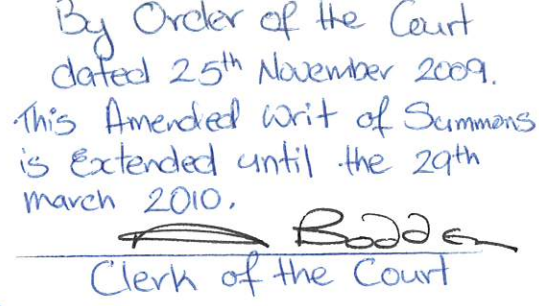 By Order of the Court
dated 25th November 2009.
This Amended Writ of Summons
is Extended until the 29th
march 2010.
Bodden
Clerk of the Court